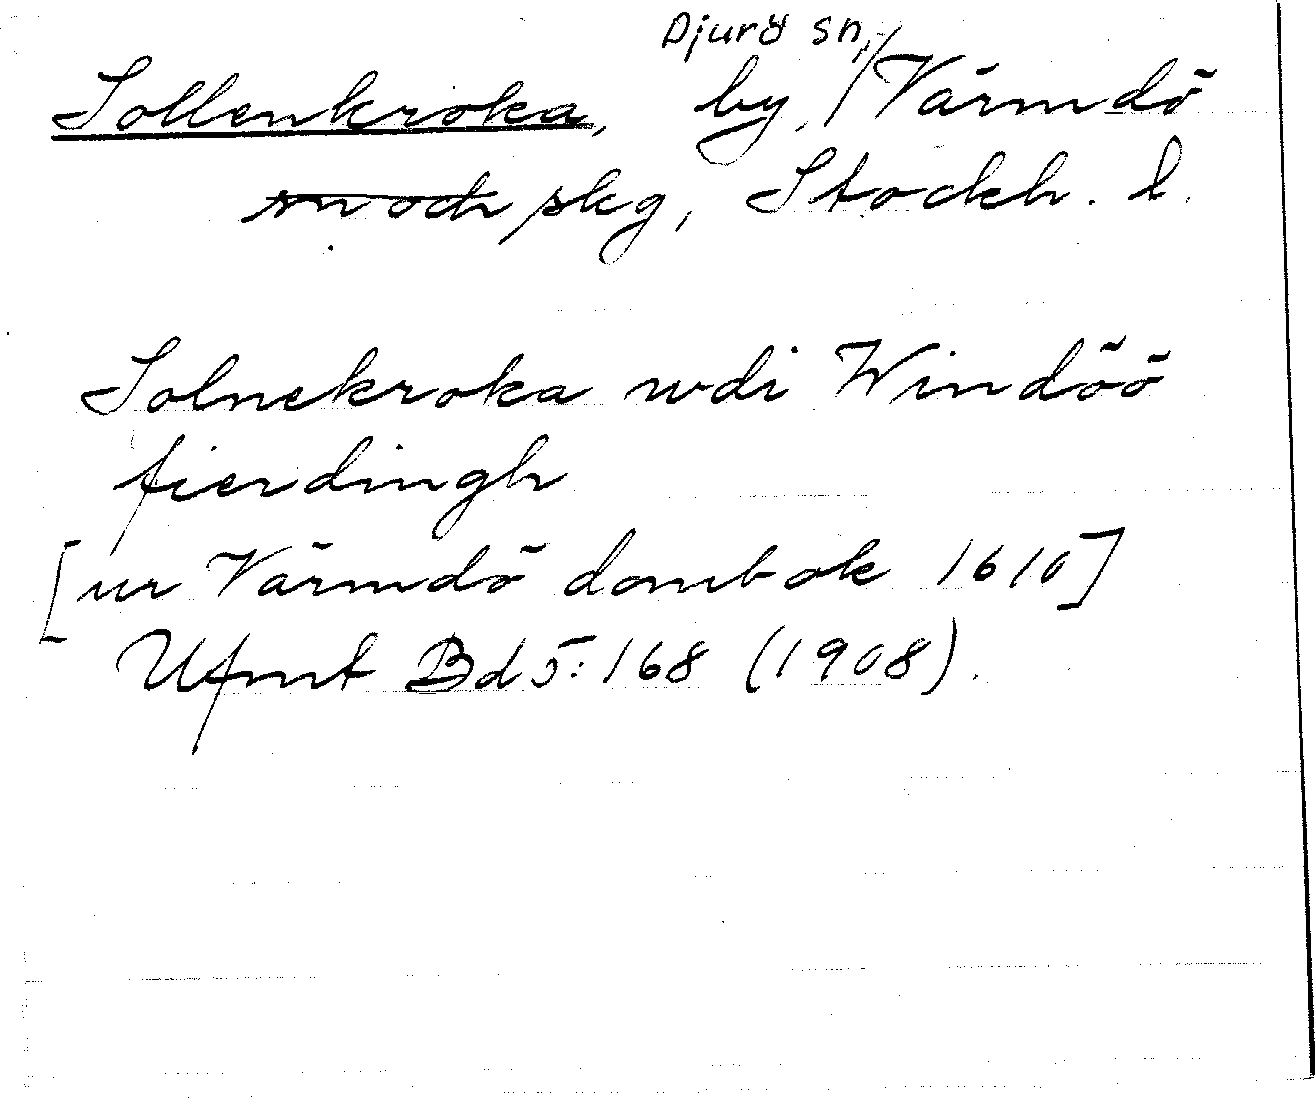 Djurö sn,
Sollenkroka, by, / Värmdö
sn och skg, Stockh. l.
Solnekroka wdi Windöö
fierdingh
[ur Värmdö dombok 1610]
Ufmt Bd 5: 168 (1908).